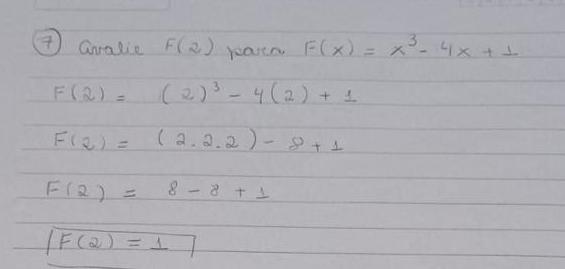 7 Avalie F(2) para F(x) = x³ - 4x + 1
F(2) = (2)³ - 4(2) + 1
F(2) = (2.2.2) - 8 + 1
F(2) = 8 - 8 + 1
F(2) = 1